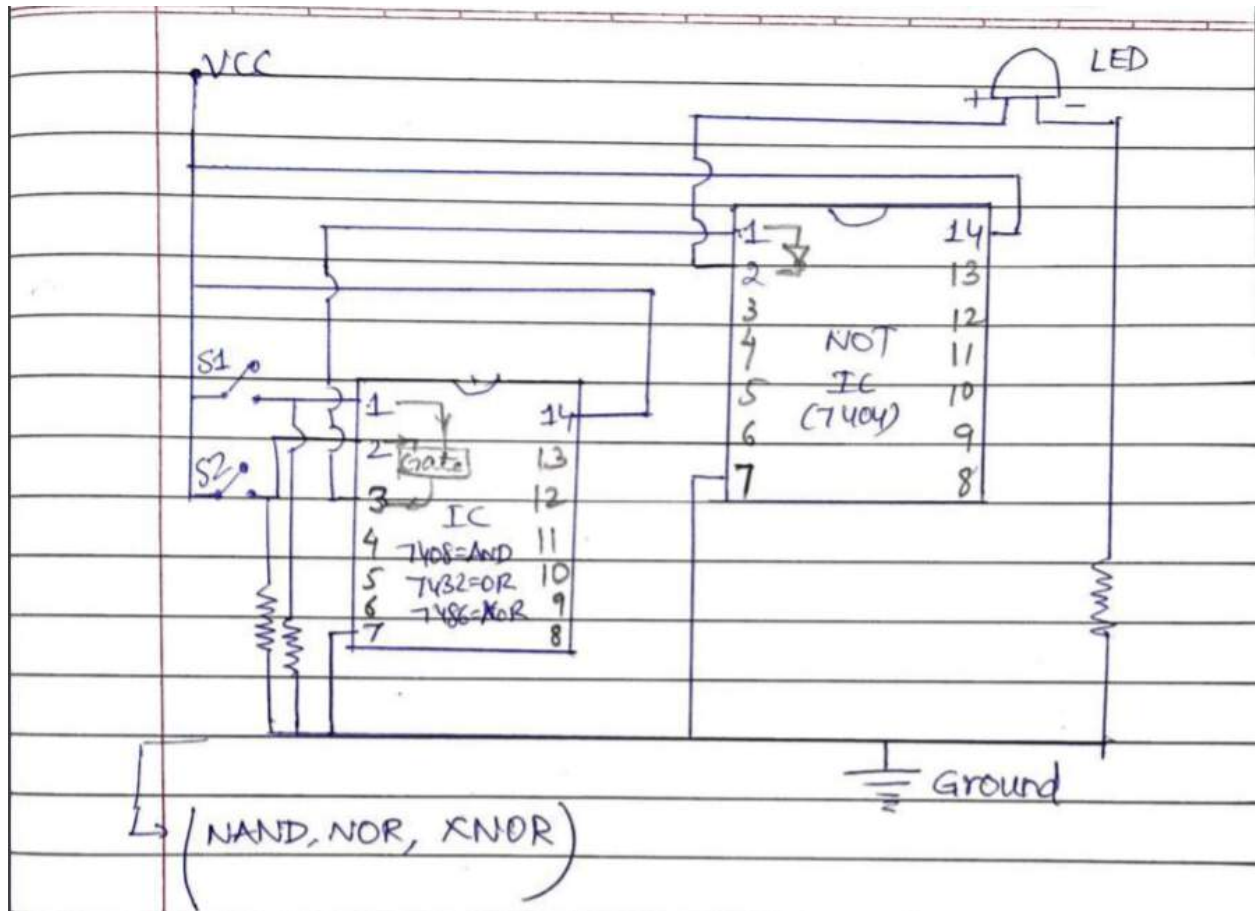 VCC
LED
+ -
1 14
2 13
3 12
4 NOT 11
5 IC 10
(7404)
6 9
7 8
S1
S2
1 14
2 Gate 13
3 12
IC
4 7408=AND 11
5 7432=OR 10
6 7486=XOR 9
7 8
Ground
(NAND, NOR, XNOR)